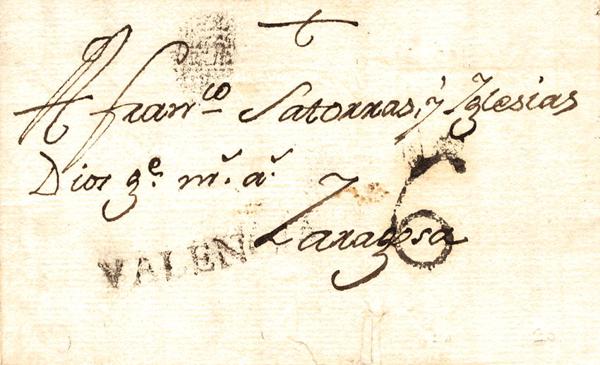 A Fran^co Satorras, y Yglesias
Dios g^e. m^s. a^s.
Zaragosa
VALENCIA
6